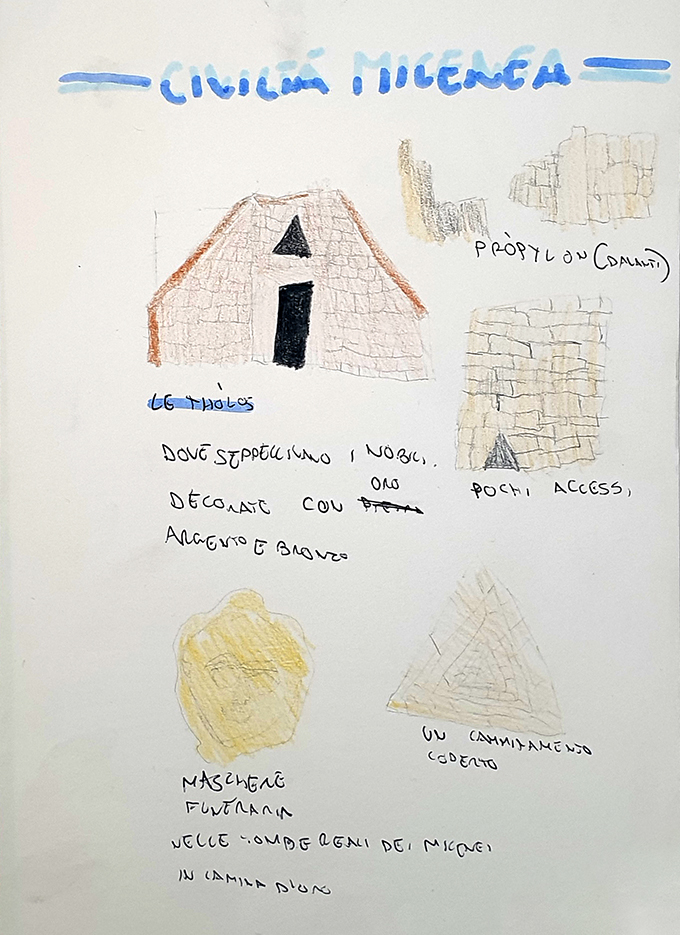 CIVILTÀ MICENEA
PRÒPYLON (DAVANTI)
LE THÒLOS
DOVE SEPPELLIVANO I NOBILI.
ORO
DECORATE CON
ARGENTO E BRONZO
POCHI ACCESSI
UN CAMMINAMENTO
COPERTO
MASCHERE
FUNERARIA
NELLE TOMBE REALI DEI MICENEI
IN LAMINA D'ORO